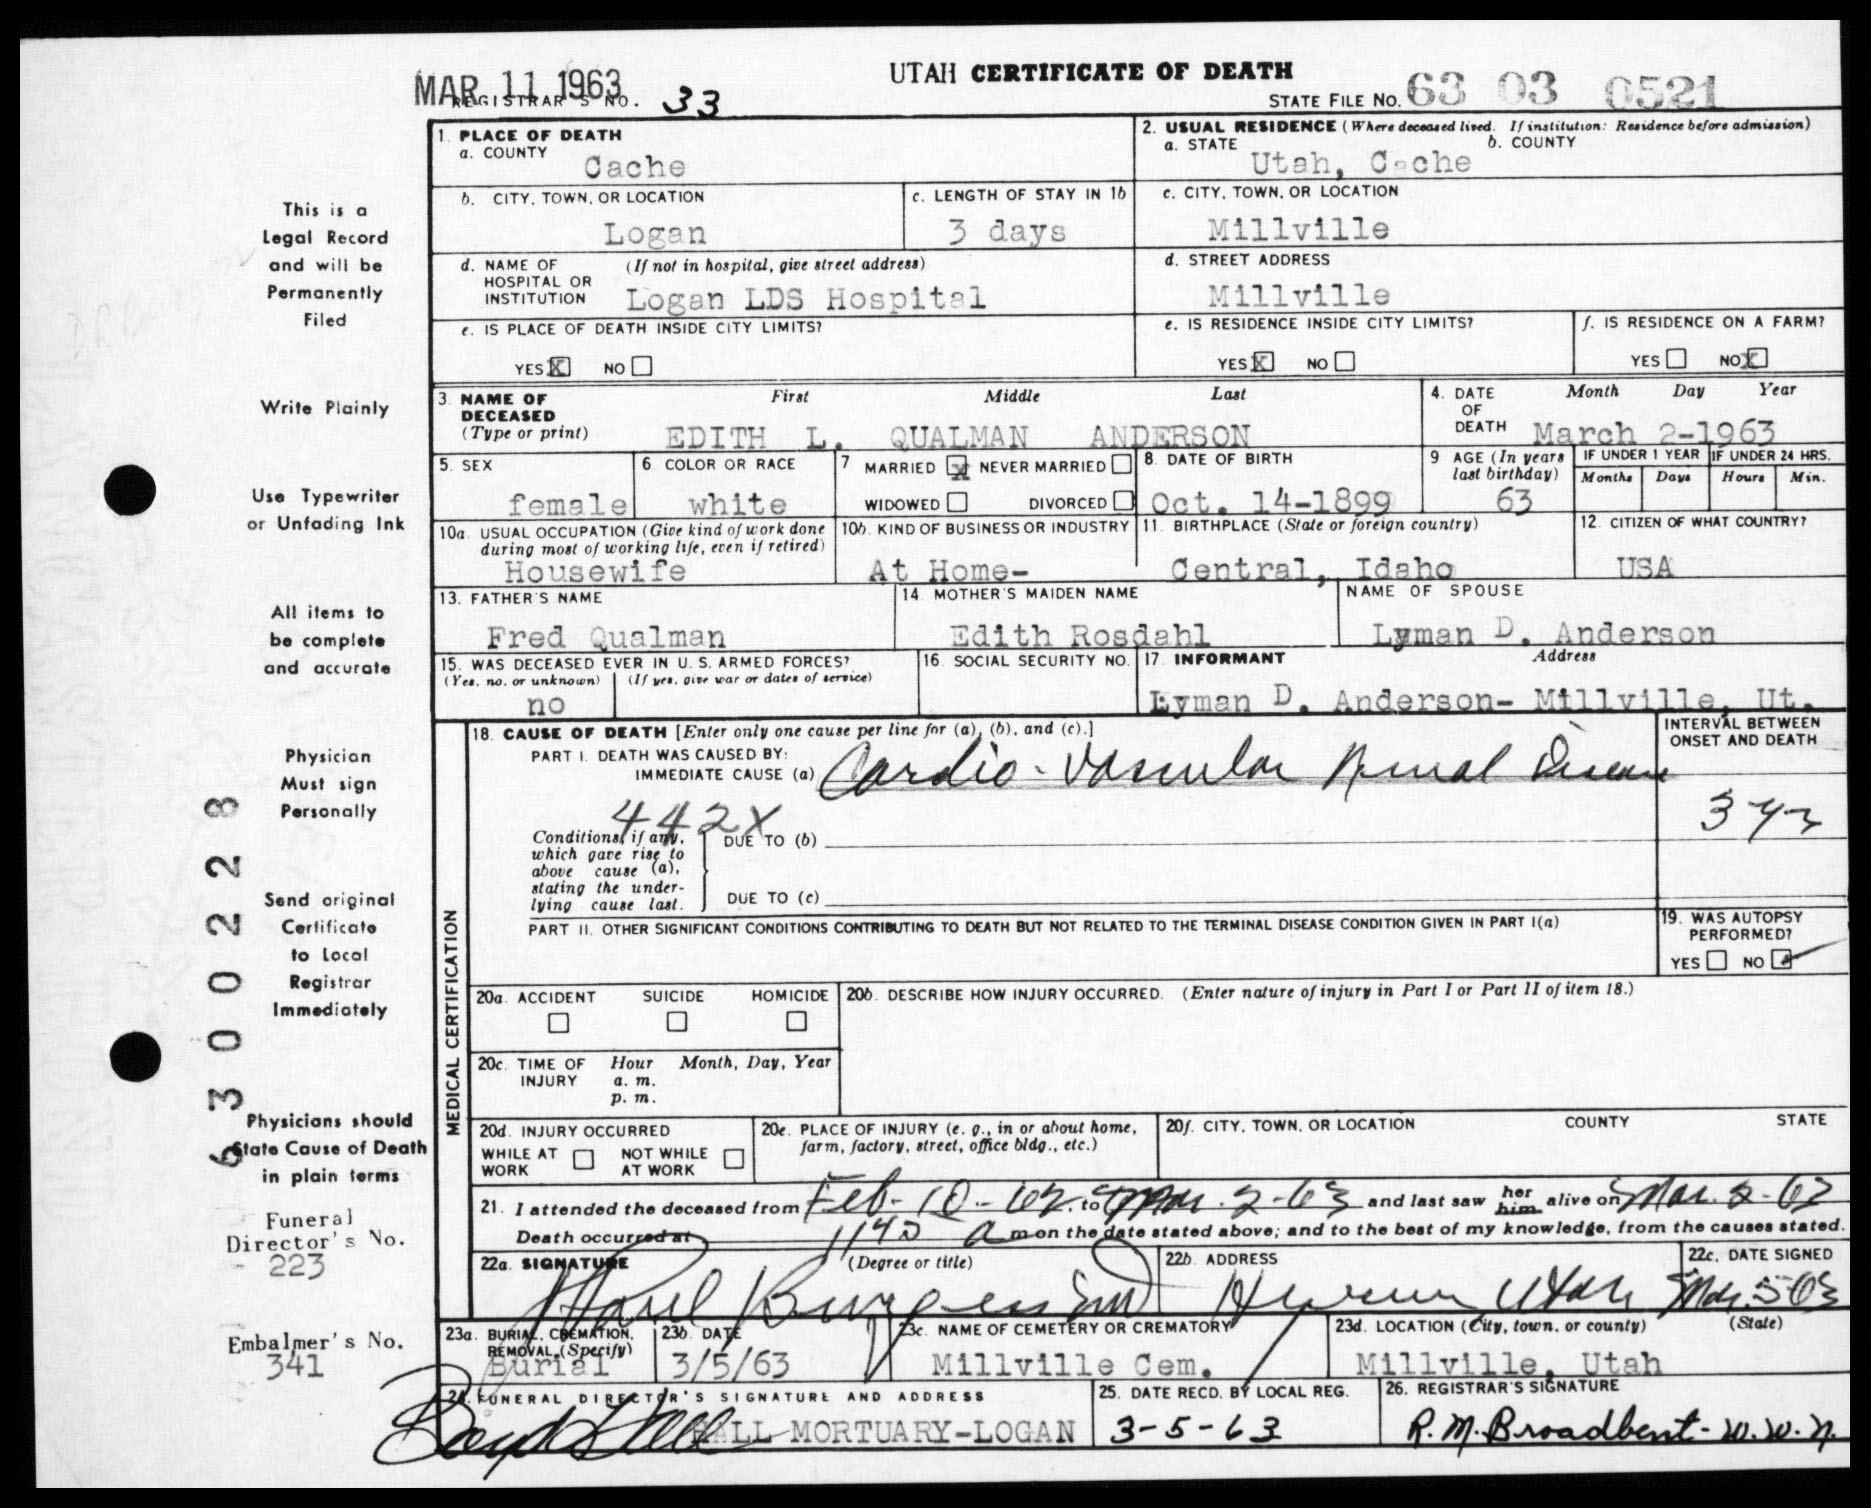 MAR 11 1963
UTAH CERTIFICATE OF DEATH
REGISTRAR'S NO. 33
STATE FILE NO. 63 03 0521
1. PLACE OF DEATH
a. COUNTY
Cache
2. USUAL RESIDENCE (Where deceased lived. If institution: Residence before admission)
a. STATE b. COUNTY
Utah, Cache
b. CITY, TOWN, OR LOCATION
Logan
c. LENGTH OF STAY IN 1b
3 days
c. CITY, TOWN, OR LOCATION
Millville
d. NAME OF HOSPITAL OR INSTITUTION (If not in hospital, give street address)
Logan LDS Hospital
d. STREET ADDRESS
Millville
e. IS PLACE OF DEATH INSIDE CITY LIMITS?
YES X NO
e. IS RESIDENCE INSIDE CITY LIMITS?
YES X NO
f. IS RESIDENCE ON A FARM?
YES NO X
3. NAME OF DECEASED (Type or print)
First Middle Last
EDITH L. QUALMAN ANDERSON
4. DATE OF DEATH Month Day Year
March 2-1963
5. SEX
female
6. COLOR OR RACE
white
7 MARRIED X NEVER MARRIED
WIDOWED DIVORCED
8. DATE OF BIRTH
Oct. 14-1899
9 AGE (In years last birthday)
63
IF UNDER 1 YEAR
Months Days
IF UNDER 24 HRS.
Hours Min.
10a. USUAL OCCUPATION (Give kind of work done during most of working life, even if retired)
Housewife
10b. KIND OF BUSINESS OR INDUSTRY
At Home-
11. BIRTHPLACE (State or foreign country)
Central, Idaho
12. CITIZEN OF WHAT COUNTRY?
USA
13. FATHER'S NAME
Fred Qualman
14. MOTHER'S MAIDEN NAME
Edith Rosdahl
NAME OF SPOUSE
Lyman D. Anderson
15. WAS DECEASED EVER IN U. S. ARMED FORCES?
(Yes, no, or unknown) (If yes, give war or dates of service)
no
16. SOCIAL SECURITY NO.
17. INFORMANT Address
Lyman D. Anderson- Millville, Ut.
MEDICAL CERTIFICATION
18. CAUSE OF DEATH [Enter only one cause per line for (a), (b), and (c).]
PART I. DEATH WAS CAUSED BY:
IMMEDIATE CAUSE (a) Cardio-Vascular Renal Disease
INTERVAL BETWEEN ONSET AND DEATH
3 yrs
442X
Conditions, if any, which gave rise to above cause (a), stating the underlying cause last.
DUE TO (b)
DUE TO (c)
PART II. OTHER SIGNIFICANT CONDITIONS CONTRIBUTING TO DEATH BUT NOT RELATED TO THE TERMINAL DISEASE CONDITION GIVEN IN PART I(a)
19. WAS AUTOPSY PERFORMED?
YES NO
20a. ACCIDENT SUICIDE HOMICIDE
20b. DESCRIBE HOW INJURY OCCURRED. (Enter nature of injury in Part I or Part II of item 18.)
20c. TIME OF INJURY Hour Month, Day, Year
a. m.
p. m.
20d. INJURY OCCURRED
WHILE AT WORK NOT WHILE AT WORK
20e. PLACE OF INJURY (e. g., in or about home, farm, factory, street, office bldg., etc.)
20f. CITY, TOWN, OR LOCATION COUNTY STATE
21. I attended the deceased from Feb-10-62, to Mar. 2-63 and last saw her him alive on Mar. 2-63
Death occurred at 1140 a m on the date stated above; and to the best of my knowledge, from the causes stated.
22a. SIGNATURE (Degree or title)
22b. ADDRESS
Hyrum Utah
22c. DATE SIGNED
Mar. 5 63
23a. BURIAL, CREMATION, REMOVAL, (Specify)
Burial
23b. DATE
3/5/63
23c. NAME OF CEMETERY OR CREMATORY
Millville Cem.
23d. LOCATION (City, town, or county) (State)
Millville, Utah
24. FUNERAL DIRECTOR'S SIGNATURE AND ADDRESS
HALL MORTUARY-LOGAN
25. DATE RECD. BY LOCAL REG.
3-5-63
26. REGISTRAR'S SIGNATURE
R. M. Broadbent- W. W. N.
This is a
Legal Record
and will be
Permanently
Filed
Write Plainly
Use Typewriter
or Unfading Ink
All items to
be complete
and accurate
Physician
Must sign
Personally
Send original
Certificate
to Local
Registrar
Immediately
Physicians should
State Cause of Death
in plain terms
Funeral
Director's No.
223
Embalmer's No.
341
6300228